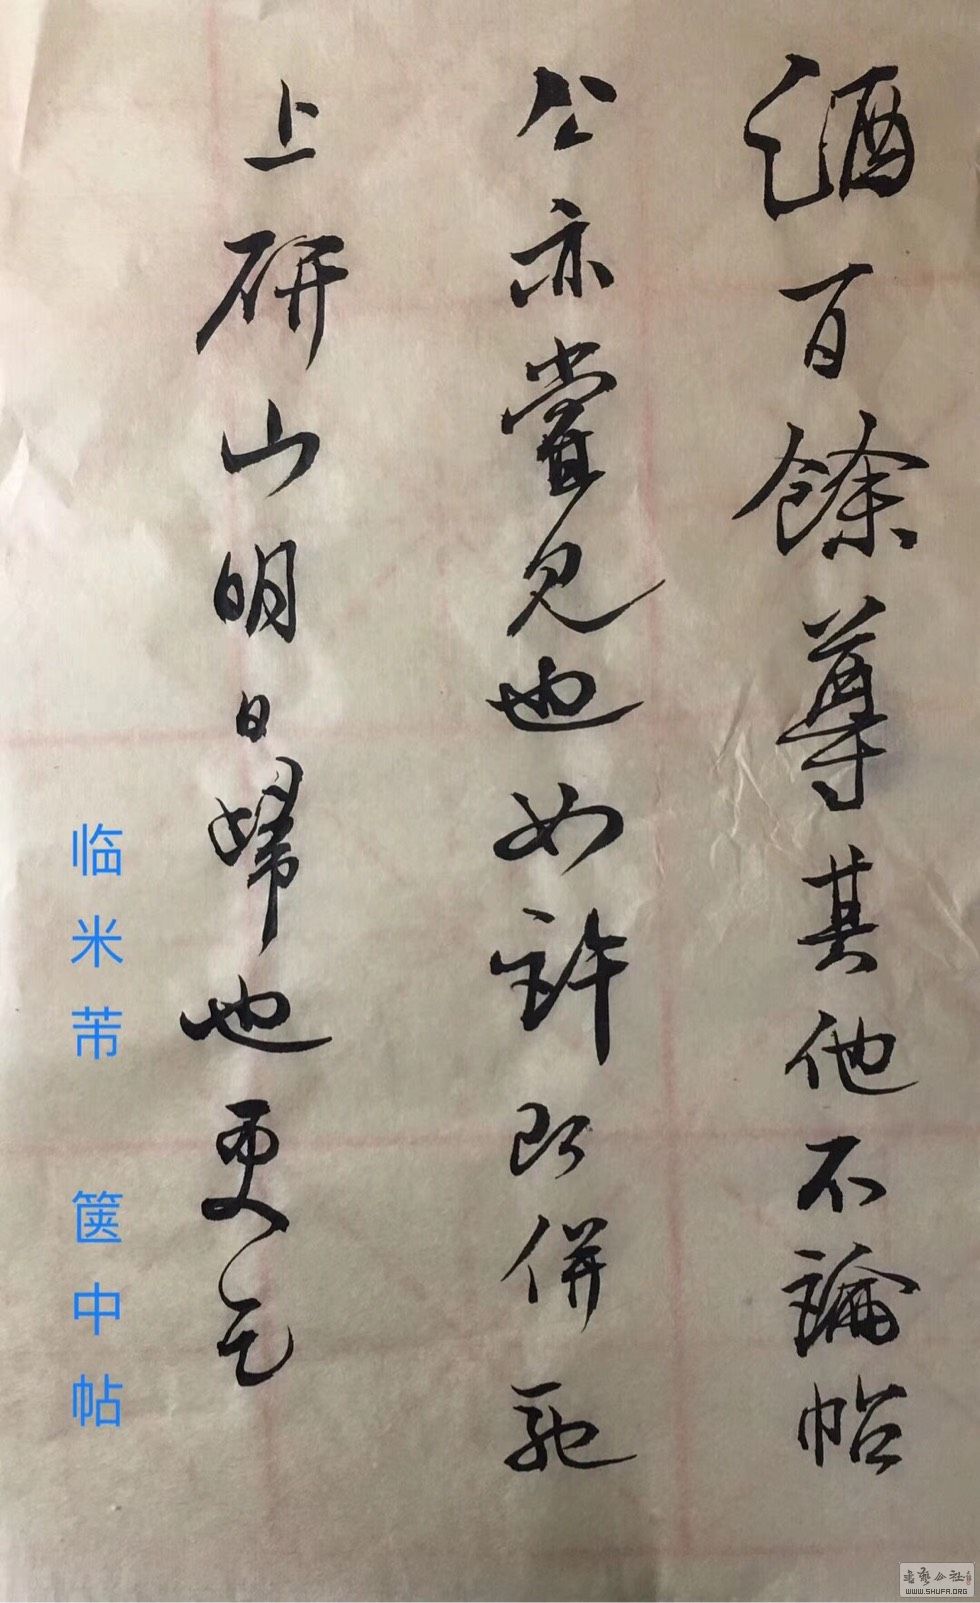 酒百餘尊其他不論帖
公亦嘗見也如許即併馳
上研山明日歸也更乞
临米芾 箧中帖
書藝公社
WWW.SHUFA.ORG